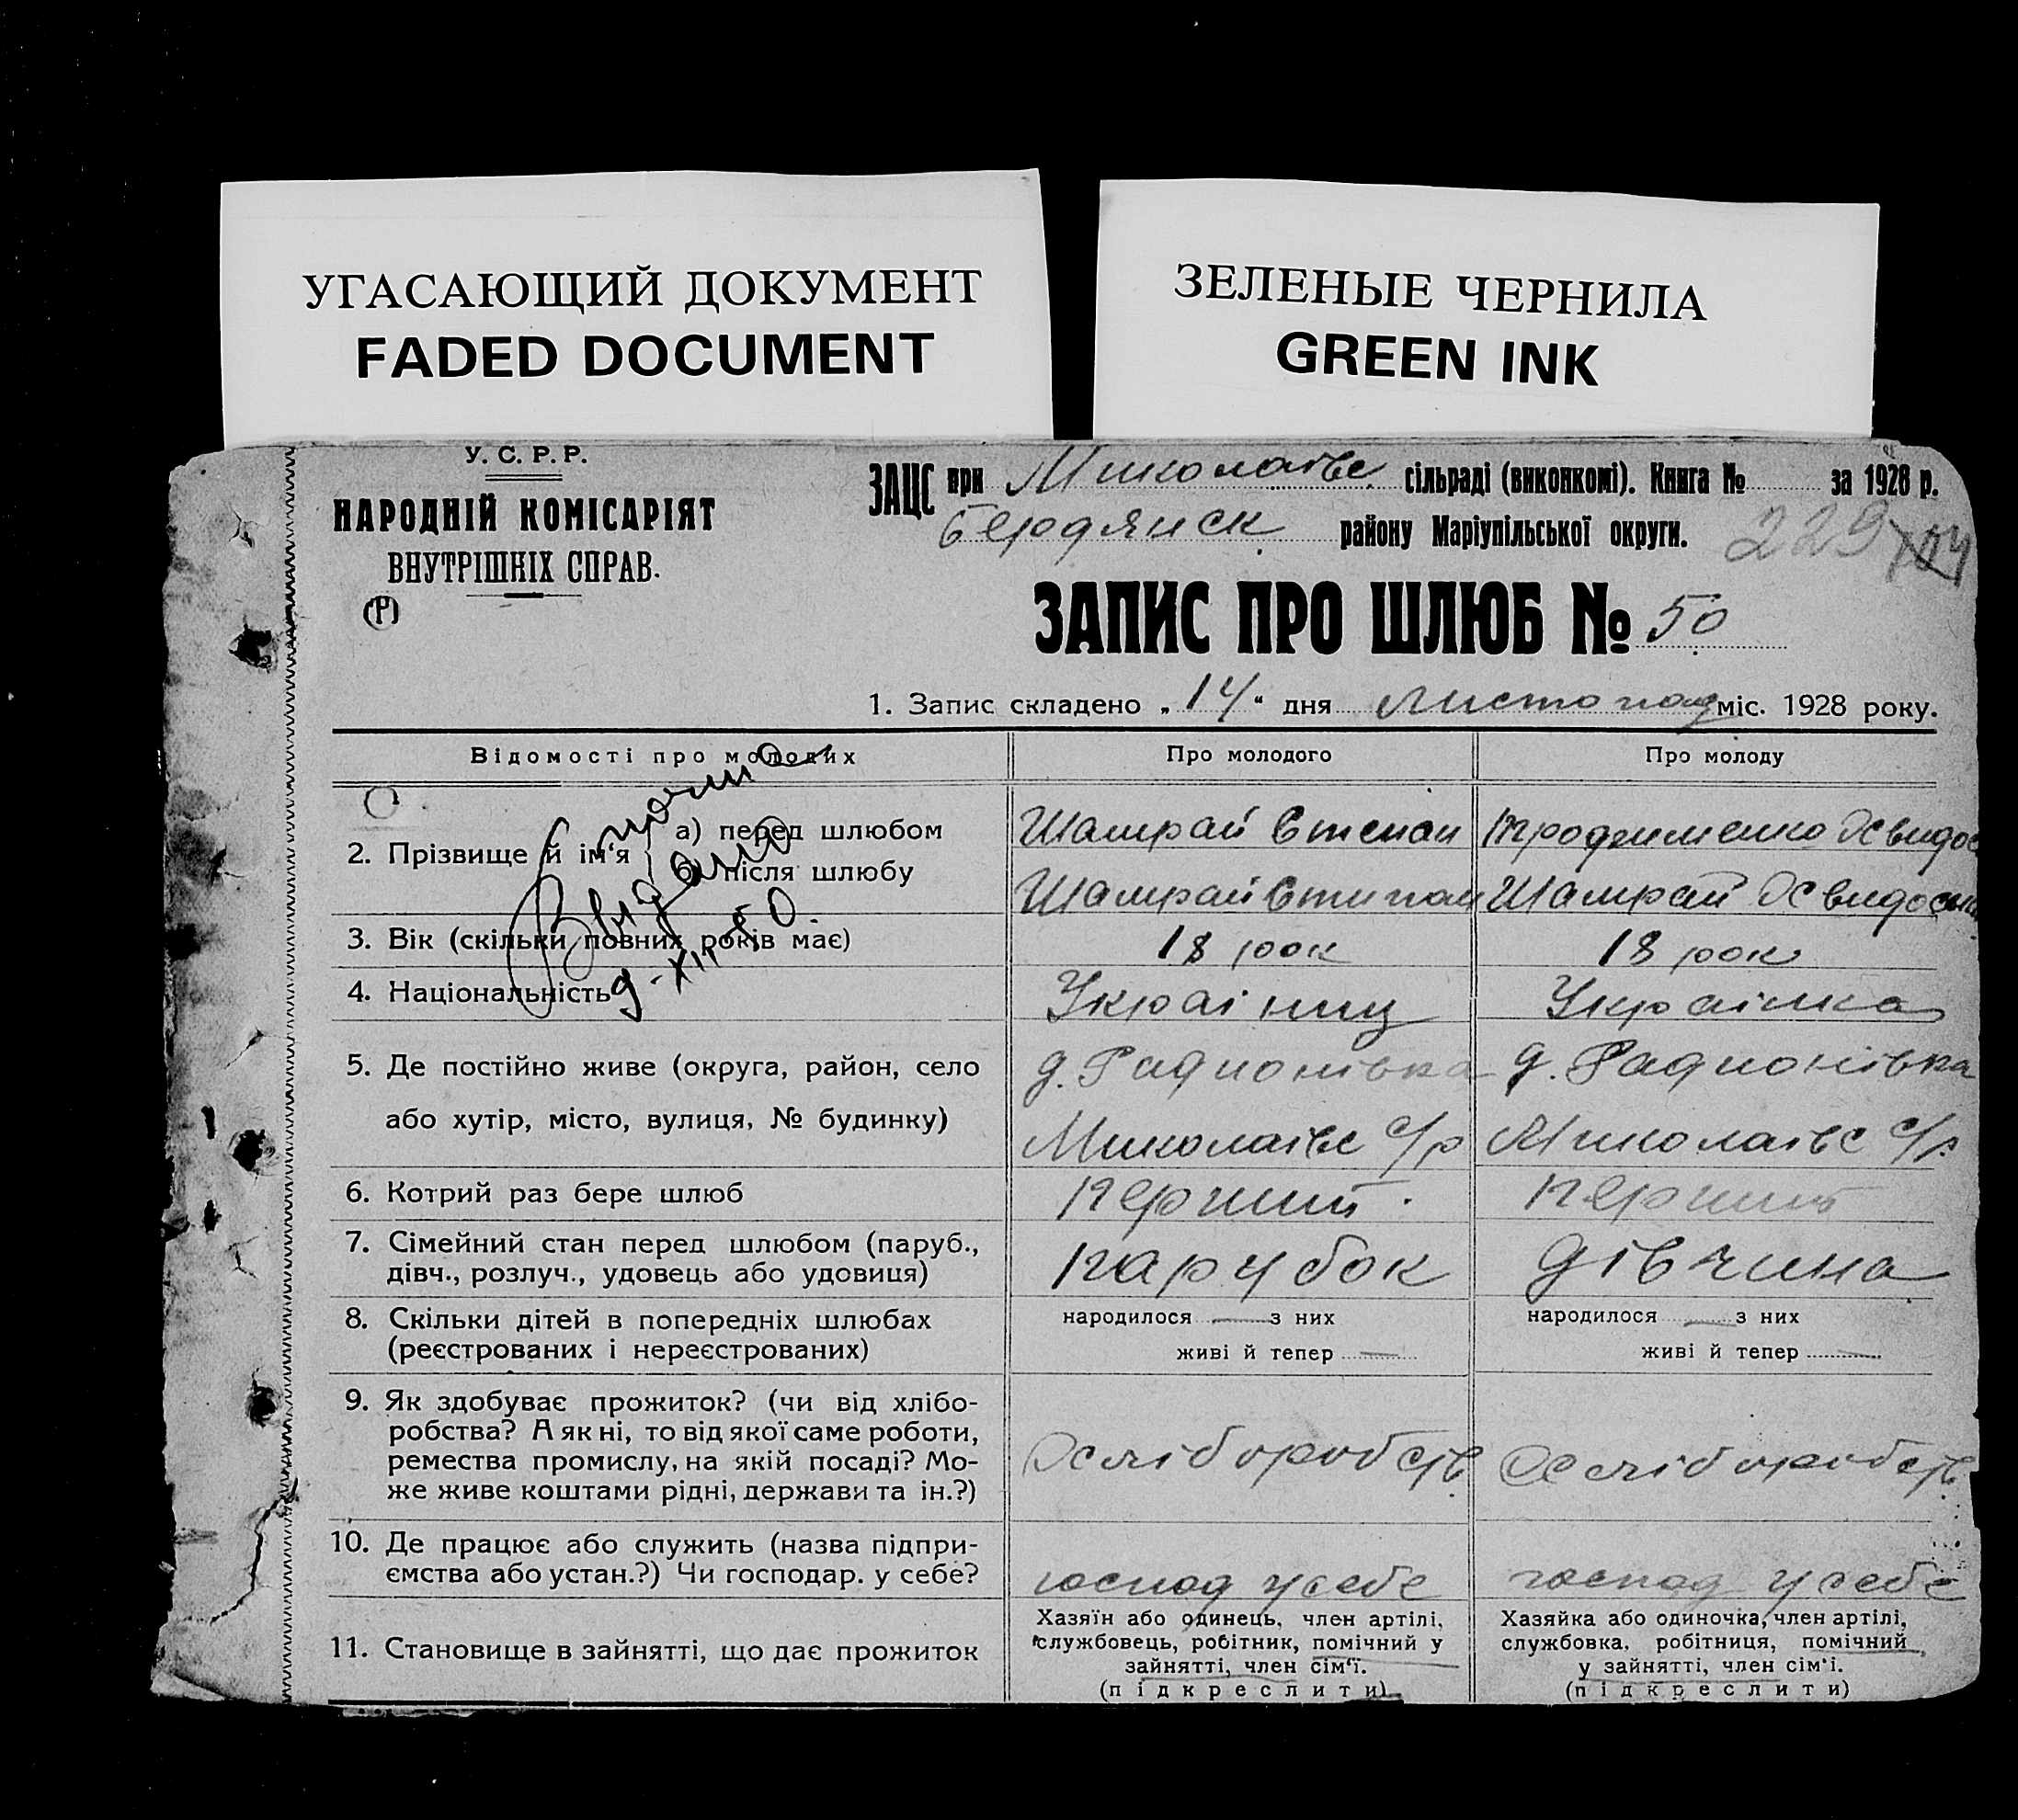 УГАСАЮЩИЙ ДОКУМЕНТ
FADED DOCUMENT
ЗЕЛЕНЫЕ ЧЕРНИЛА
GREEN INK
У. С. Р. Р.
НАРОДНІЙ КОМІСАРІЯТ
ВНУТРІШНІХ СПРАВ.
(Р)
ЗАЦС при Миколаївс сільраді (виконкомі). Книга № за 1928 р.
Бердянск району Маріупільської округи.
229
ЗАПИС ПРО ШЛЮБ № 50
1. Запис складено „14“ дня листопад міс. 1928 року.
Відомості про молодих
Про молодого
Про молоду
2. Прізвище й ім‘я
а) перед шлюбом
Шамрай Степан
б) після шлюбу
Шамрай Степан
Шамрай
3. Вік (скільки повних років має)
18 рок
18 рок
4. Національність
Украінец
Украінка
5. Де постійно живе (округа, район, село
або хутір, місто, вулиця, № будинку)
д. Радионівка
Миколаівс с/р
д. Радионівка
Миколаівс с/р
6. Котрий раз бере шлюб
перший
перший
7. Сімейний стан перед шлюбом (паруб.,
дівч., розлуч., удовець або удовиця)
парубок
дівчина
8. Скільки дітей в попередніх шлюбах
(реєстрованих і нереєстрованих)
народилося — з них
живі й тепер —
народилося — з них
живі й тепер —
9. Як здобуває прожиток? (чи від хлібо-
робства? А як ні, то від якої саме роботи,
ремества промислу, на якій посаді? Мо-
же живе коштами рідні, держави та ін.?)
Хліборобств
Хліборобств
10. Де працює або служить (назва підпри-
ємства або устан.?) Чи господар. у себе?
господ у себе
господ у себе
11. Становище в зайнятті, що дає прожиток
Хазяїн або одинець, член артілі,
службовець, робітник, помічний у
зайнятті, член сім‘ї.
(підкреслити)
Хазяйка або одиночка, член артілі,
службовка, робітниця, помічний
у зайнятті, член сім‘ї.
(підкреслити)